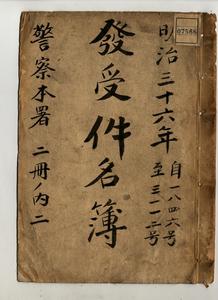 明治三十六年
自一八四六号
至三一一三号
發受件名簿
警察本署 二冊ノ内二
07566